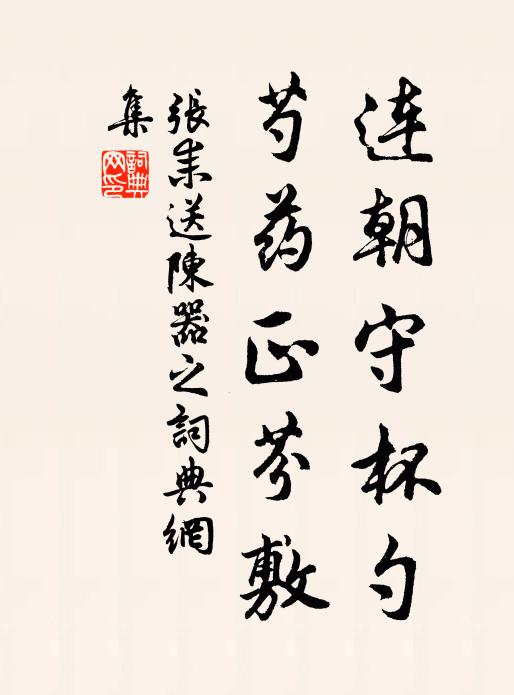 连朝守杯勺
芍药正芬敷
張耒送陳器之詞典網
集
詞典網印